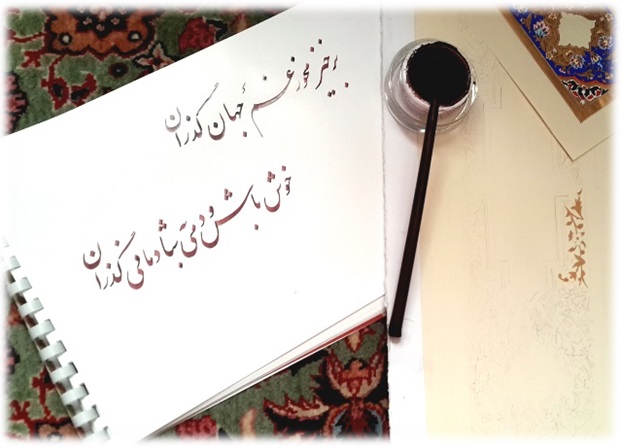 برخیز و مخور غم جهان گذران
خوش باش و دمی بشادمانی گذران